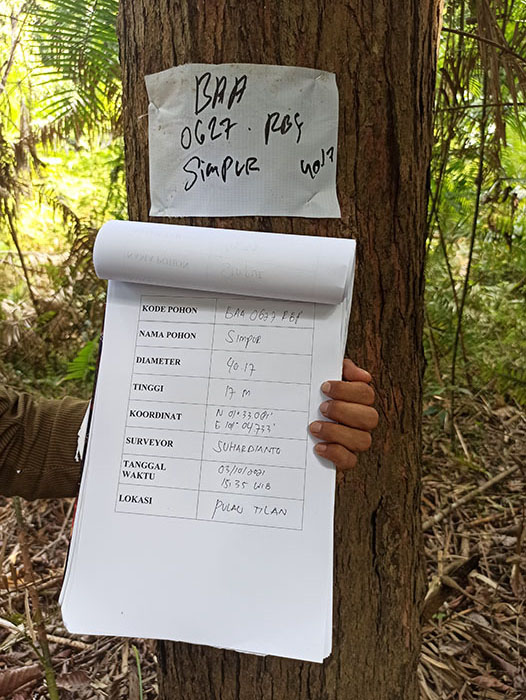 BAA
0627. RBS
Simpur 4017
KODE POHON BAA 0627 RBS
NAMA POHON Simpur
DIAMETER 40.17
TINGGI 17 M
KOORDINAT N 01° 33.001'
E 101° 04.733'
SURVEYOR SUHARDIANTO
TANGGAL 03/10/2021
WAKTU 15:35 WIB
LOKASI PULAU TILAN